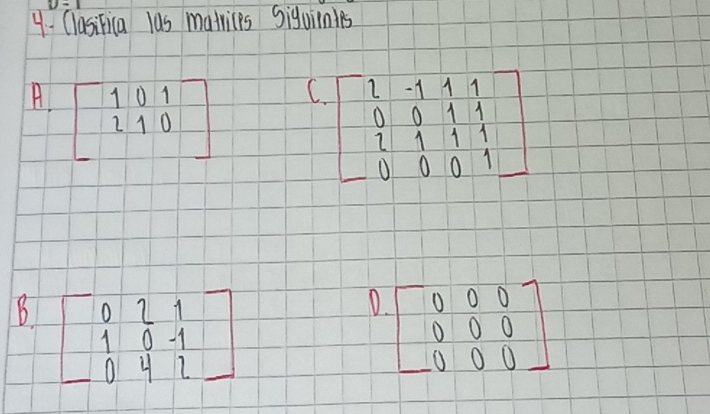 4.- Clasifica las matrices siguientes
A. 1 0 1
2 1 0
C. 2 -1 1 1
0 0 1 1
2 1 1 1
0 0 0 1
B. 0 2 1
1 0 -1
0 4 2
D. 0 0 0
0 0 0
0 0 0